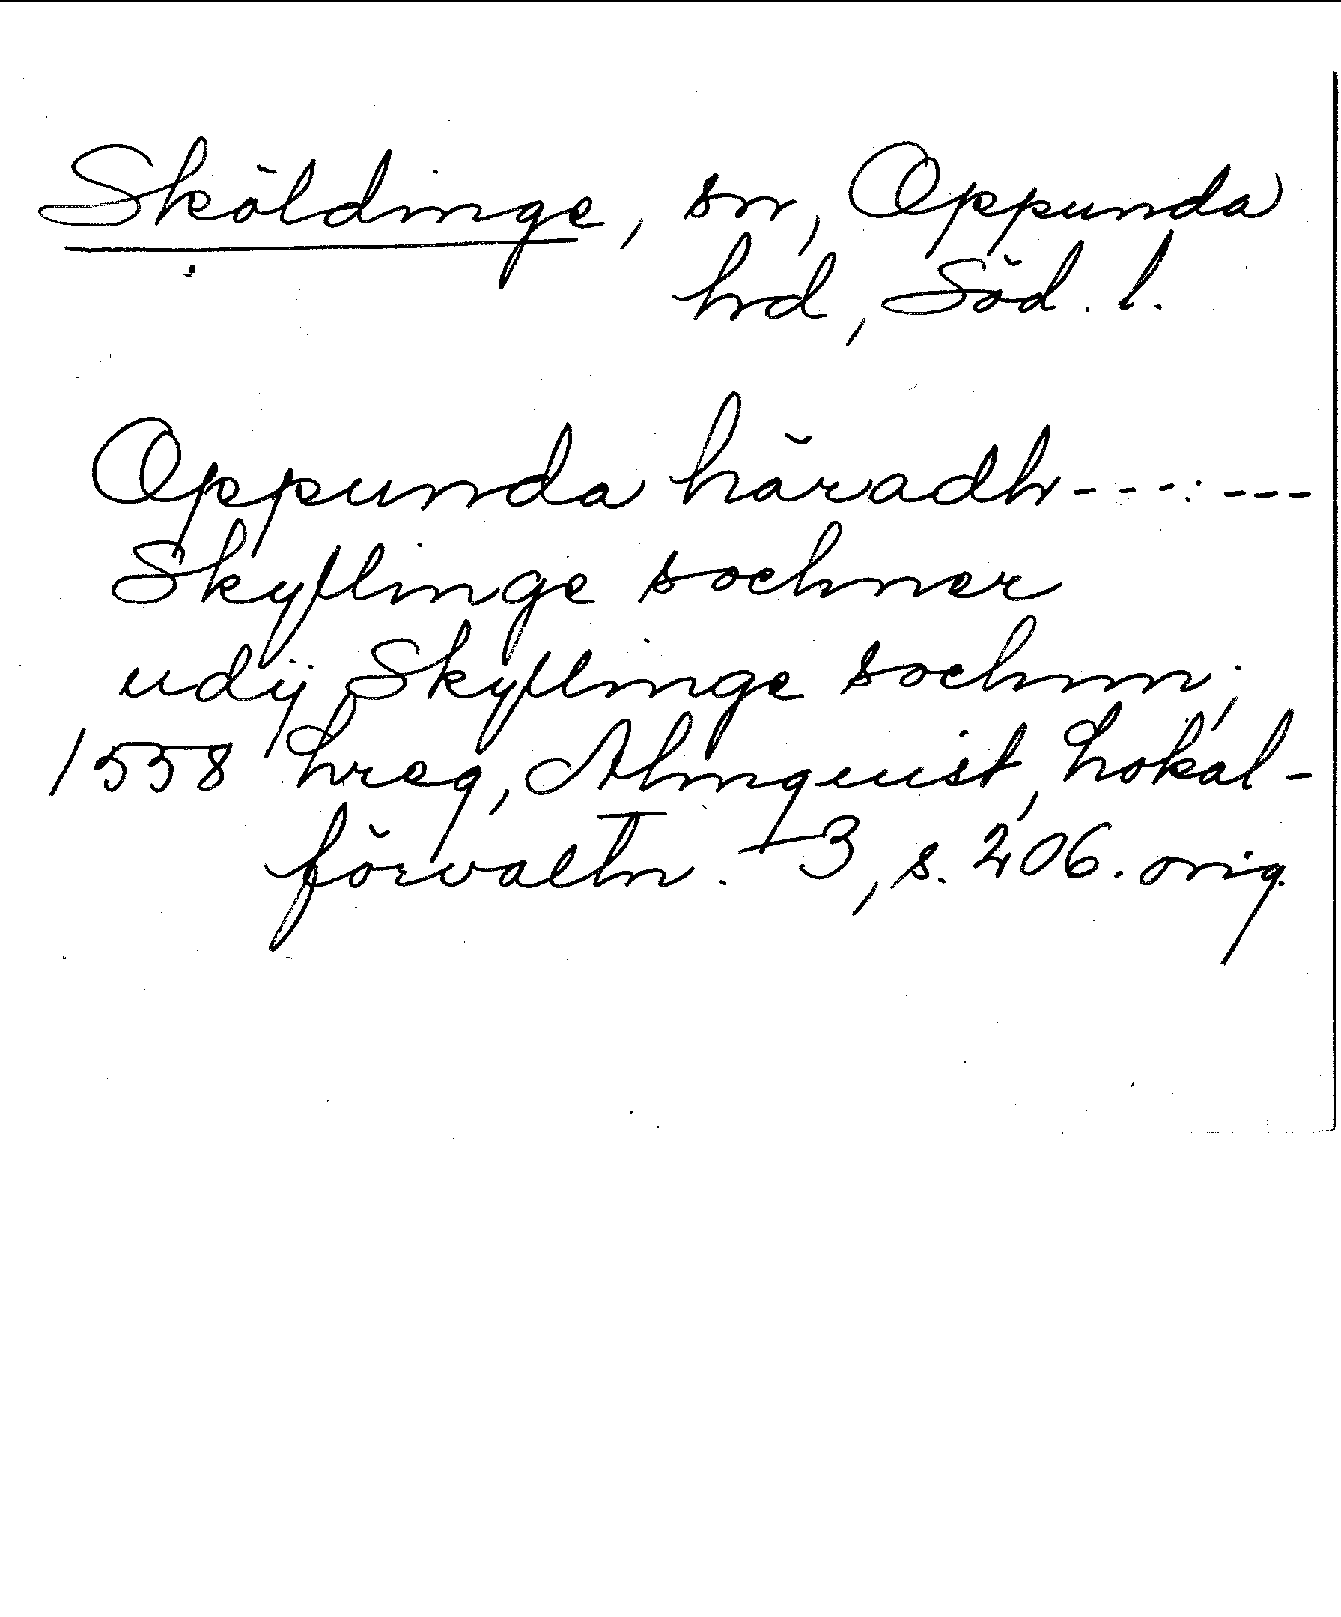 Sköldinge, sn, Oppunda
hrd, Söd. l.
Oppunda häradh - - - : - - -
Skyllinge sochner
udij Skyllinge sochnn;
1558 hreg, Almquist, Lokal-
förvaltn. 3, s. 206. orig.